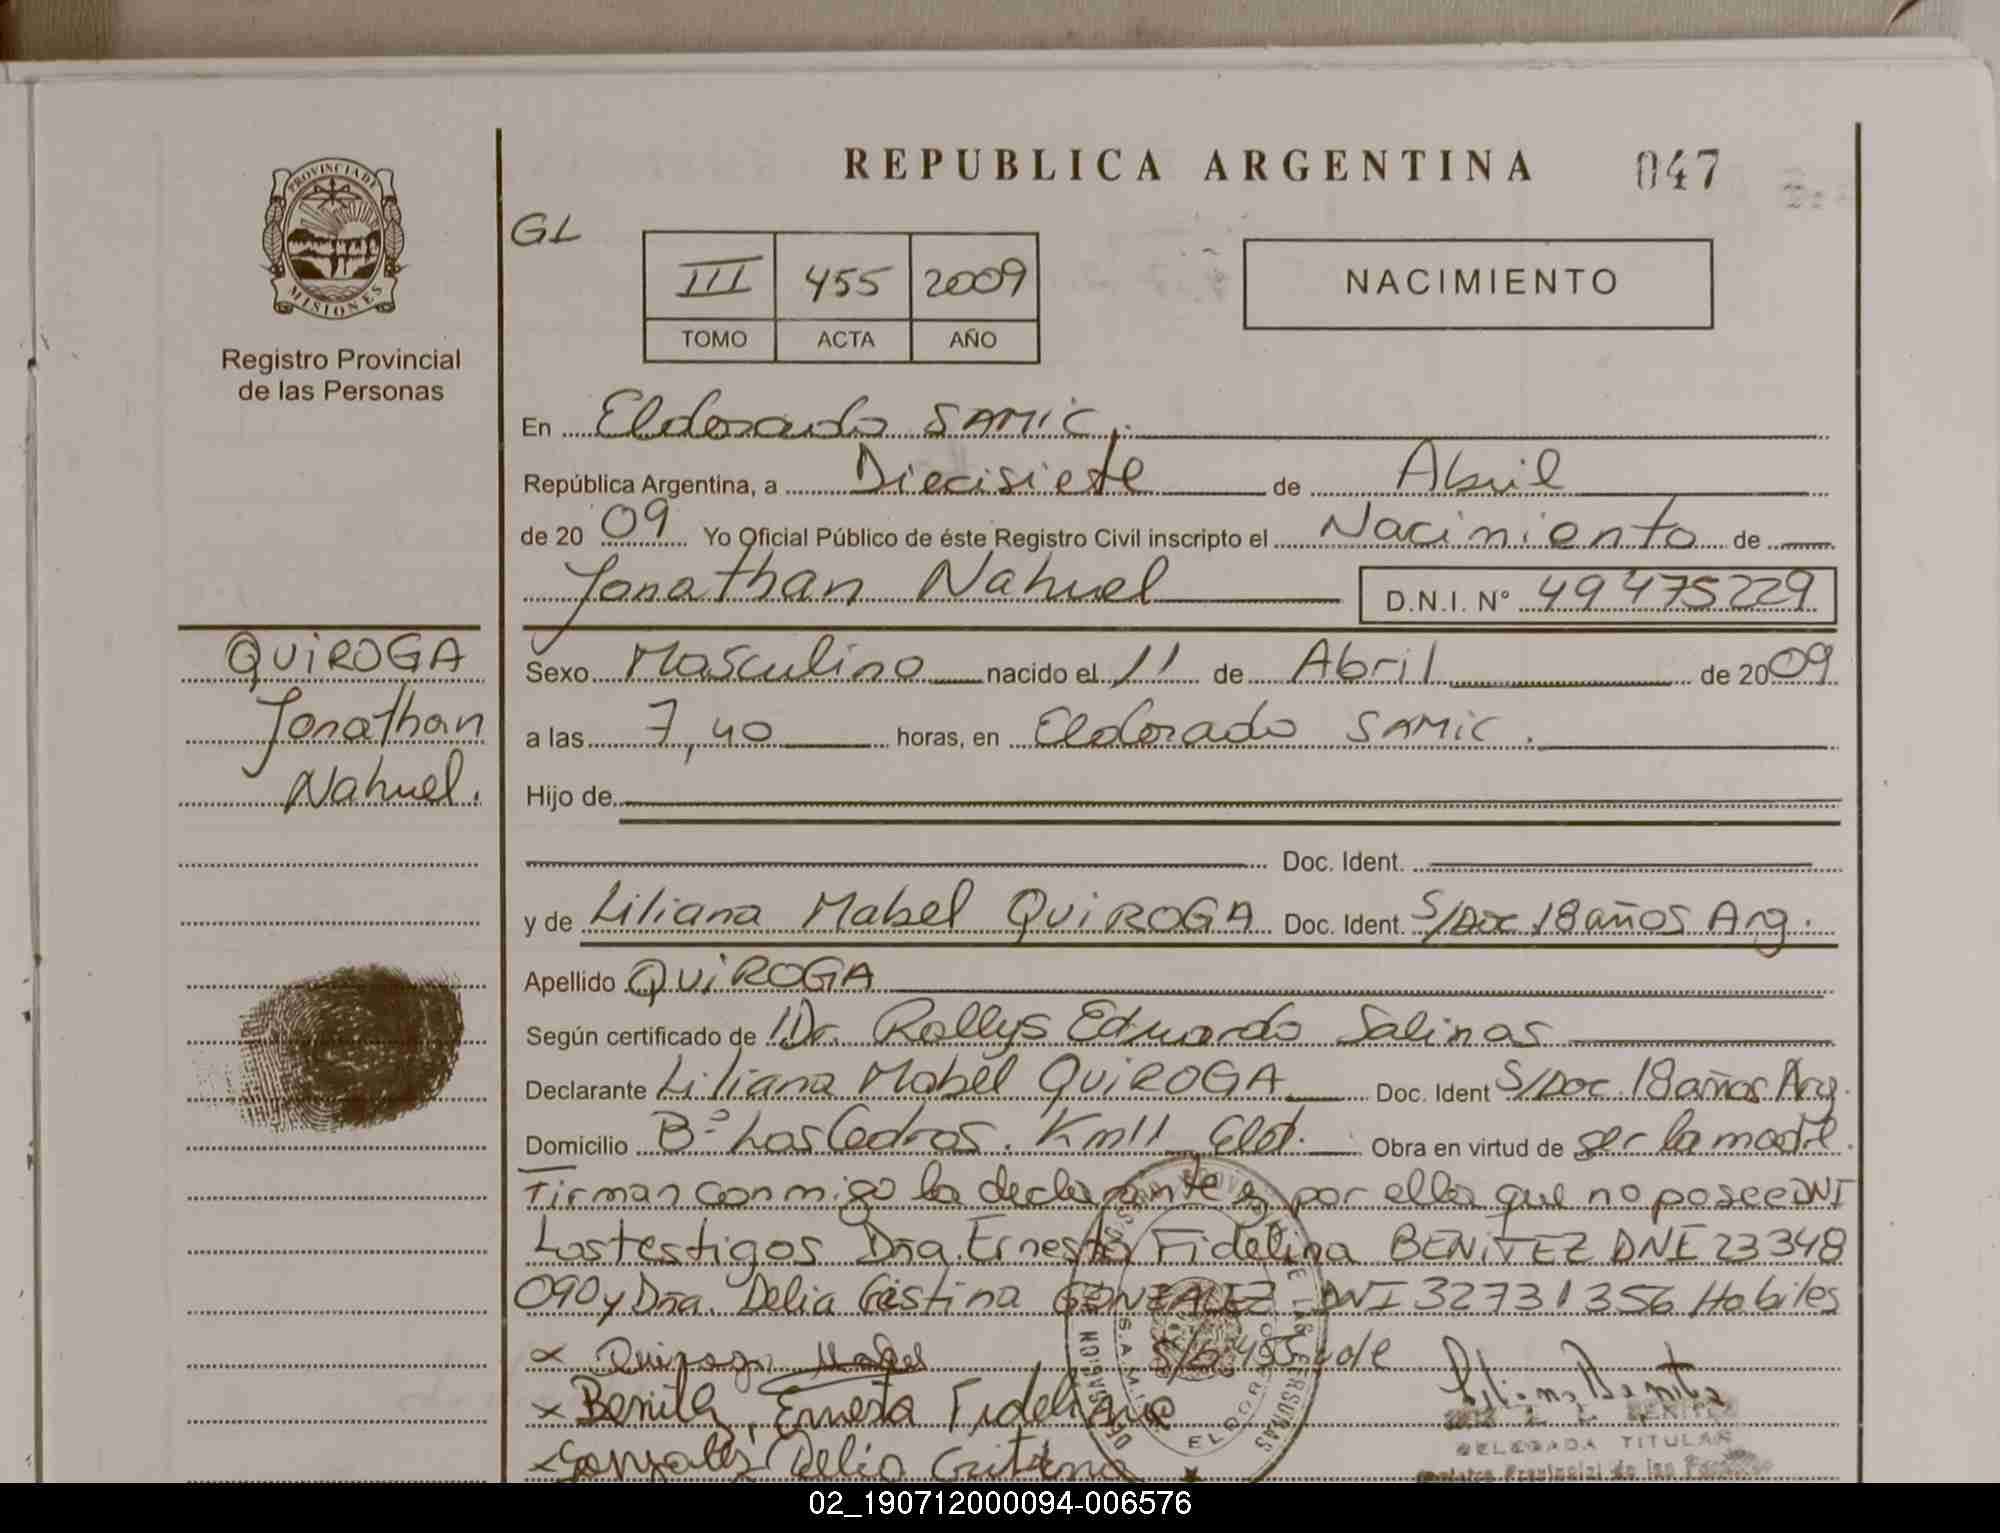 REPUBLICA ARGENTINA
047
PROVINCIA DE
MISIONES
Registro Provincial
de las Personas
GL
III 455 2009
TOMO ACTA AÑO
NACIMIENTO
En Eldorado SAMIC.
República Argentina, a Diecisiete de Abril
de 2009 Yo Oficial Público de éste Registro Civil inscripto el Nacimiento de
Jonathan Nahuel D.N.I. N° 49475229
QUIROGA
Jonathan
Nahuel.
Sexo Masculino nacido el 11 de Abril de 2009
a las 7,40 horas, en Eldorado SAMIC.
Hijo de
Doc. Ident.
y de Liliana Mabel QUIROGA Doc. Ident. S/Doc 18 años Arg.
Apellido QUIROGA
Según certificado de Dr. Rallys Eduardo Salinas
Declarante Liliana Mabel QUIROGA Doc. Ident S/Doc. 18 años Arg.
Domicilio B° Los Cedros. Km 11 Eld. Obra en virtud de ser la madre.
Firman conmigo la declarante y por ella que no posee DNI
Los testigos Dña. Ernesta Fidelina BENITEZ DNI 23348
090 y Dña. Delia Cristina GONZALEZ DNI 32731356 Habiles
x Quiroga Mabel S/b 455 vale
x Benitez, Ernesta Fidelina
x Gonzalez Delia Cristina
DELEGADA TITULAR
Registro Provincial de las Personas
02_190712000094-006576